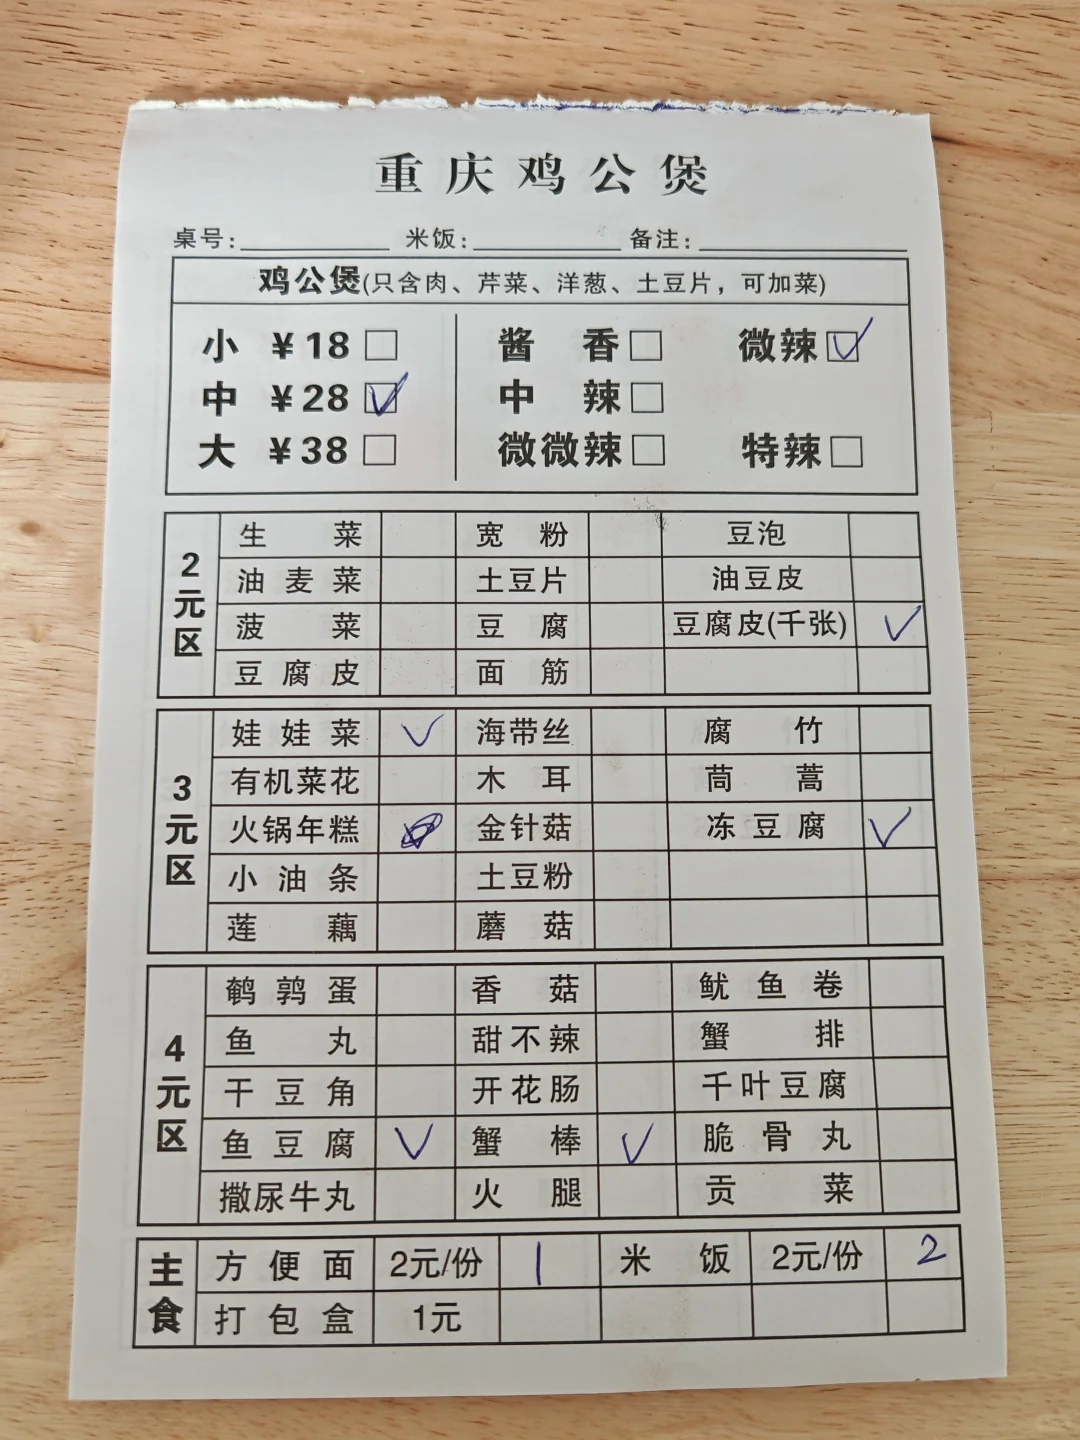 重庆鸡公煲
桌号:________ 米饭:________ 备注:________
鸡公煲(只含肉、芹菜、洋葱、土豆片，可加菜)
小 ¥18 □ 酱香 □ 微辣 ☑
中 ¥28 ☑ 中辣 □
大 ¥38 □ 微微辣 □ 特辣 □
2元区
生菜 宽粉 豆泡
油麦菜 土豆片 油豆皮
菠菜 豆腐 豆腐皮(千张) ✓
豆腐皮 面筋
3元区
娃娃菜 ✓ 海带丝 腐竹
有机菜花 木耳 茼蒿
火锅年糕 金针菇 冻豆腐 ✓
小油条 土豆粉
莲藕 蘑菇
4元区
鹌鹑蛋 香菇 鱿鱼卷
鱼丸 甜不辣 蟹排
干豆角 开花肠 千叶豆腐
鱼豆腐 ✓ 蟹棒 ✓ 脆骨丸
撒尿牛丸 火腿 贡菜
主食
方便面 2元/份 1 米饭 2元/份 2
打包盒 1元